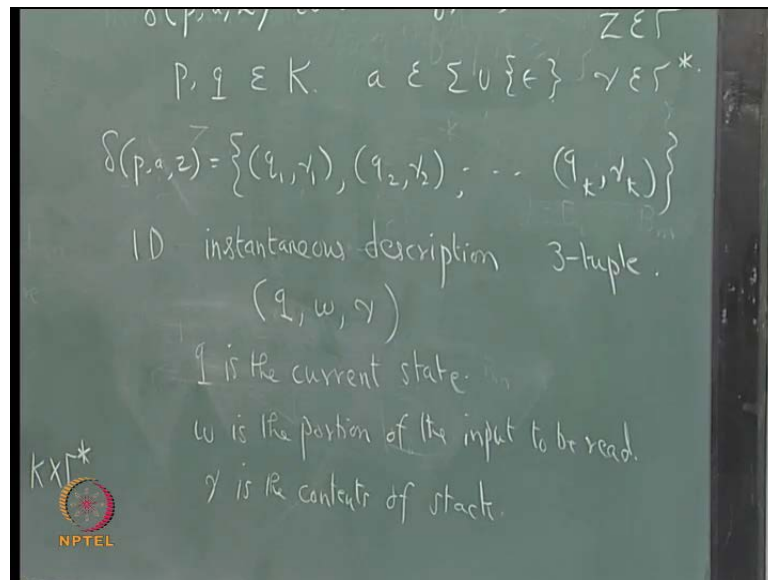 δ(p,a,z)
Z ε Γ
p, q ε K. a ε Σ ∪ {ϵ} γ ε Γ*.
δ(p,a,z) = {(q₁,γ₁), (q₂,γ₂); ... (q_k,γ_k)}
ID instantaneous description 3-tuple.
(q, w, γ)
q is the current state.
w is the portion of the input to be read.
K×Γ*
γ is the contents of stack.
NPTEL